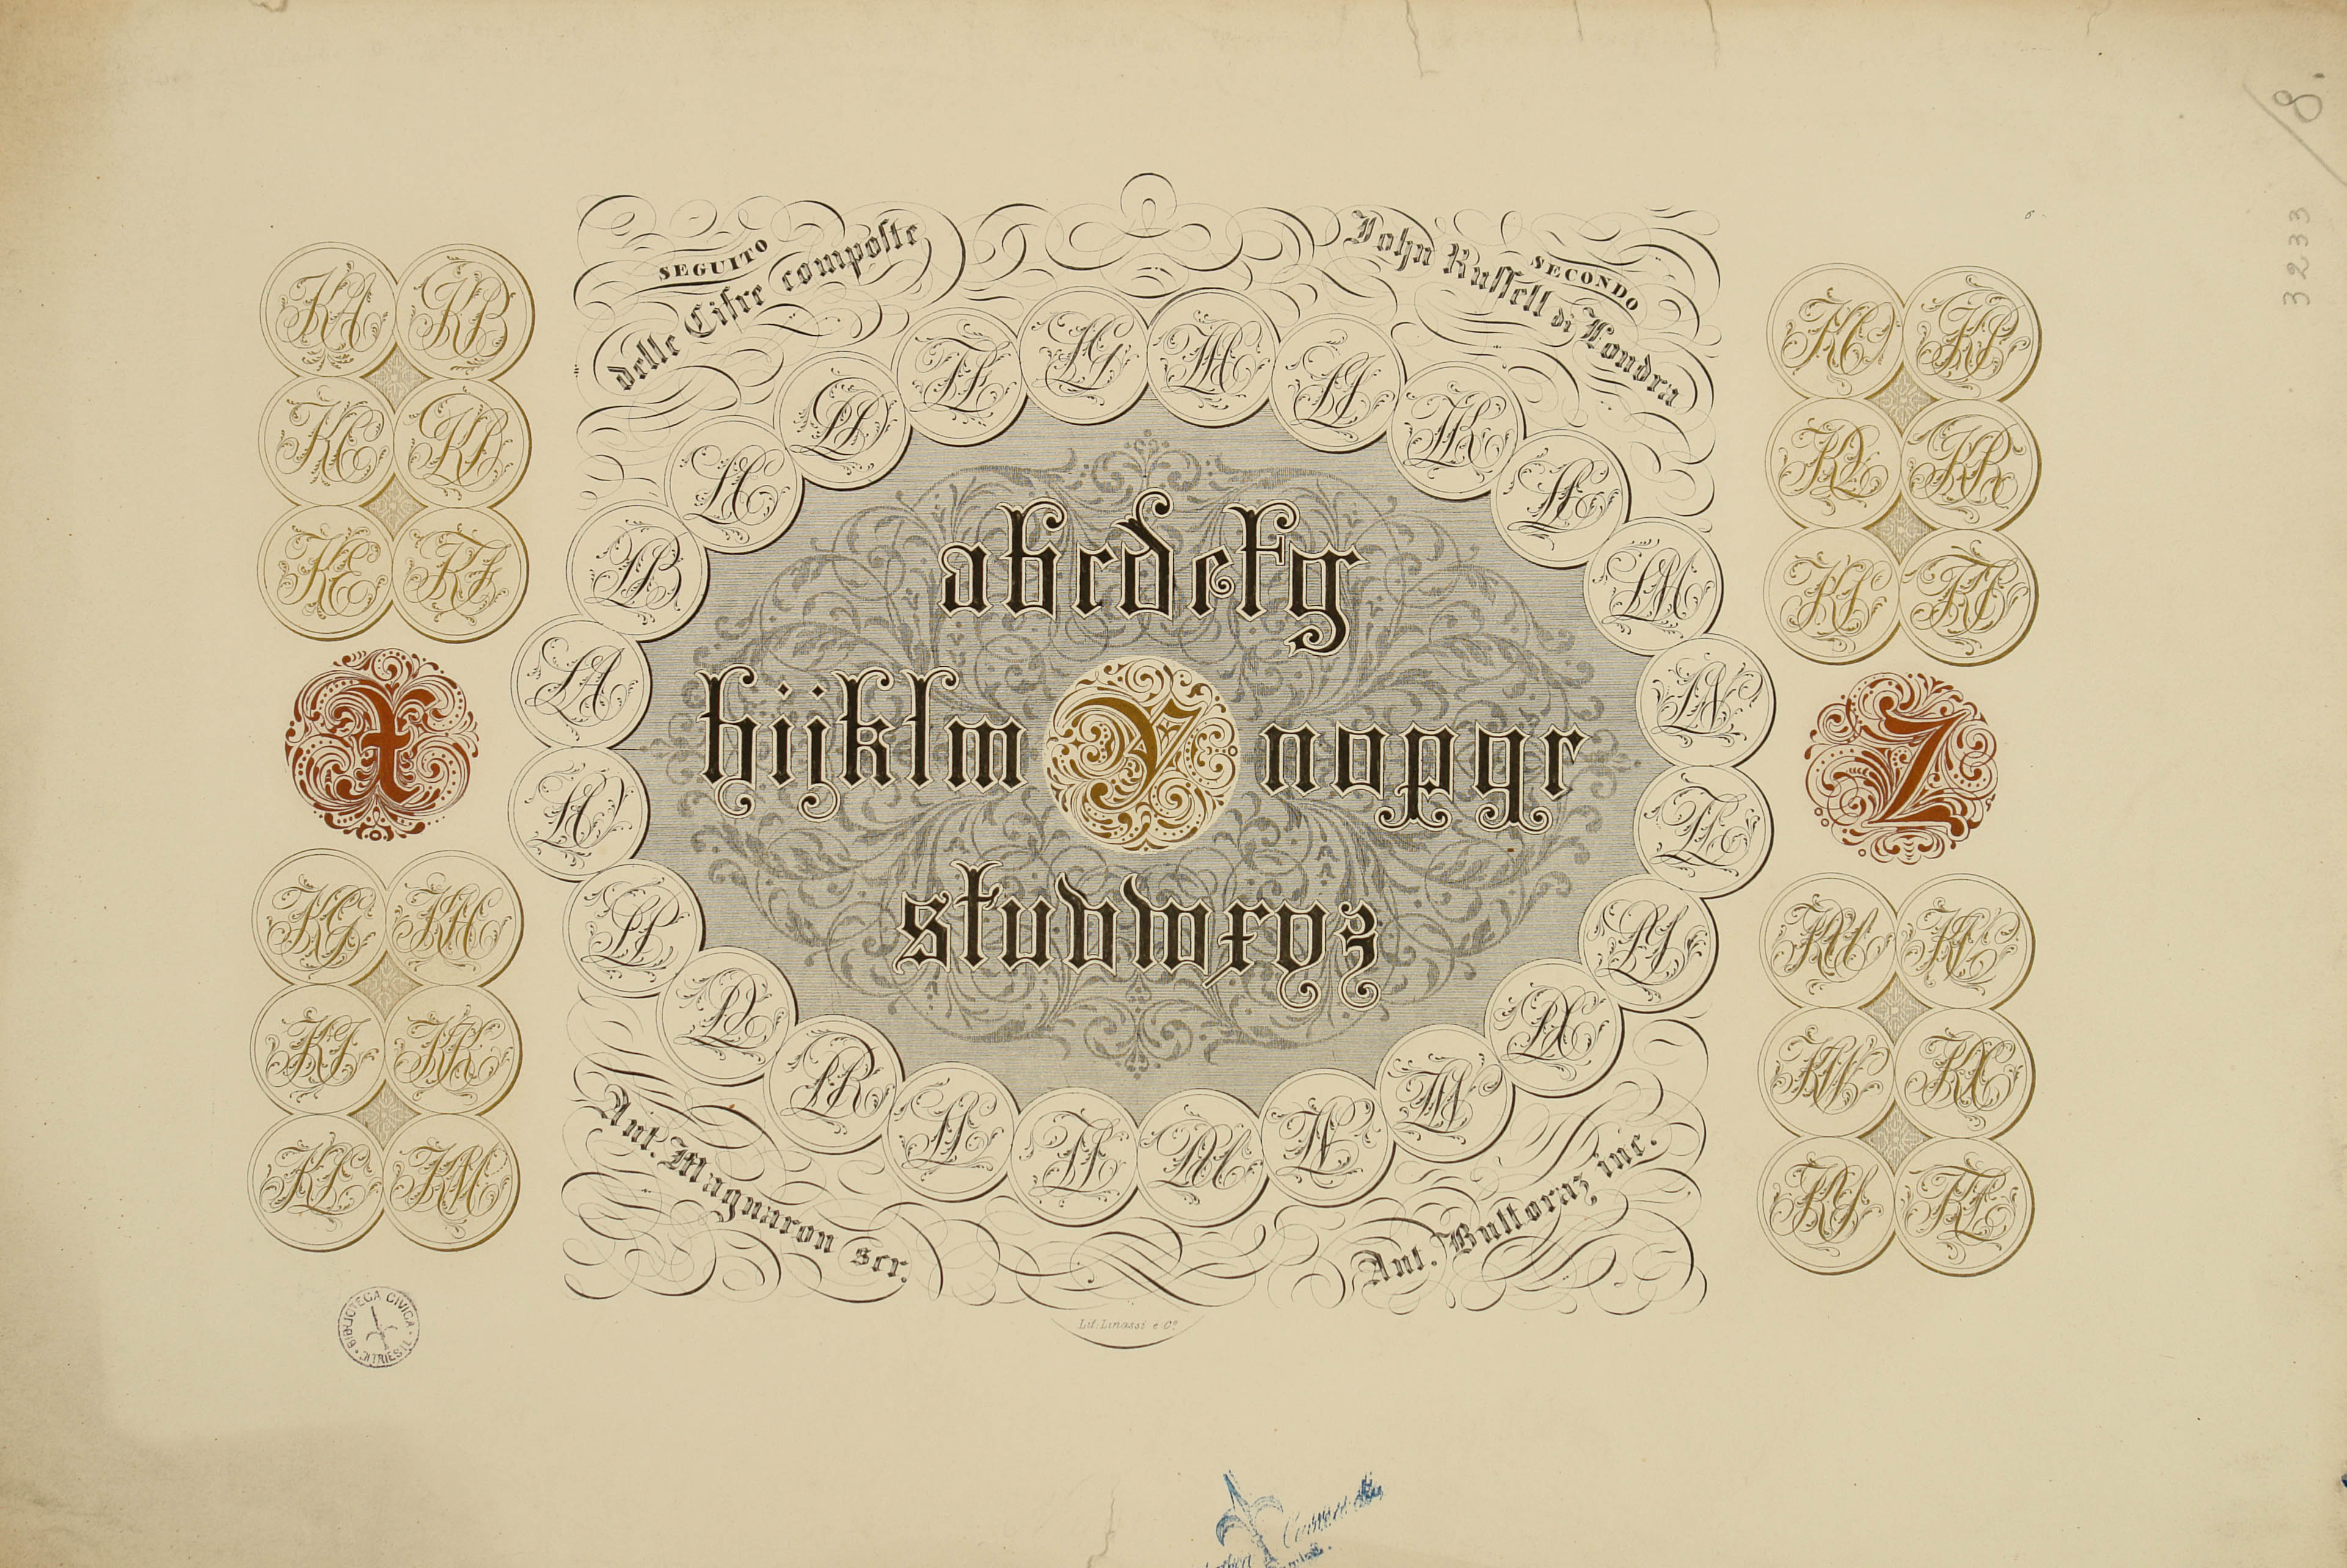 SEGUITO
delle Cifre composte
SECONDO
John Russell di Londra
KA KB
KC KD
KE KF
X
KG KH
KI KK
KL KM
LA LB LC LD LF LG LH LI LK LL LM LN
abcdefg
hijklm Y nopqr
stuvwxyz
LO LP LQ LR LS LT LU LV LW LX LY LZ
KO KP
KQ KR
KS KT
Z
KU KV
KW KX
KY KZ
Ant. Magnaron scr.
Ant. Buttoraz inc.
Lit: Linassi e Cº
BIBLIOTECA CIVICA DI TRIESTE
8.
3233